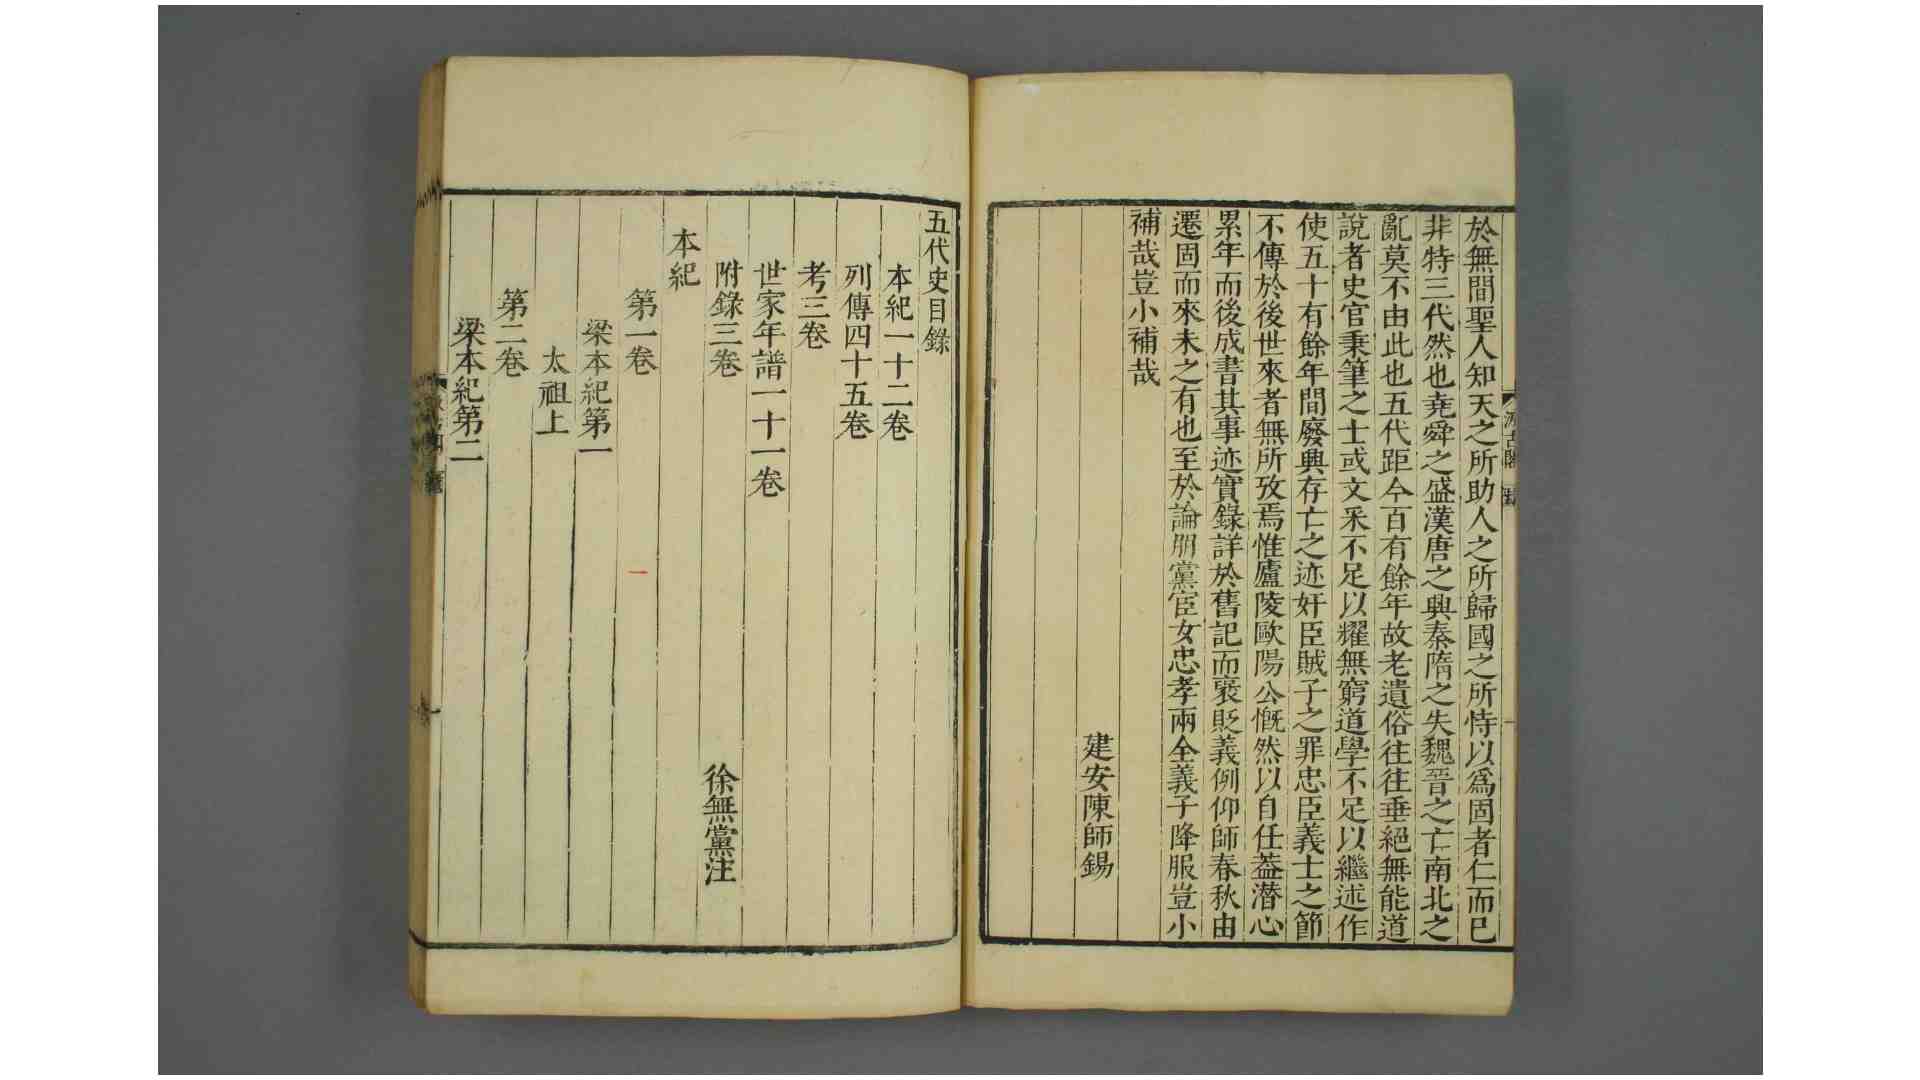 於無間聖人知天之所助人之所歸國之所恃以爲固者仁而已
非特三代然也堯舜之盛漢唐之興秦隋之失魏晉之亡南北之
亂莫不由此也五代距今百有餘年故老遺俗往往垂絕無能道
說者史官秉筆之士或文采不足以耀無窮道學不足以繼述作
使五十有餘年間廢興存亡之迹奸臣賊子之罪忠臣義士之節
不傳於後世來者無所攷焉惟廬陵歐陽公慨然以自任葢潛心
累年而後成書其事迹實錄詳於舊記而褒貶義例仰師春秋由
遷固而來未之有也至於論朋黨宦女忠孝兩全義子降服豈小
補哉豈小補哉
建安陳師錫
五代史目錄
本紀一十二卷
列傳四十五卷
考三卷
世家年譜一十一卷
附錄三卷
徐無黨注
本紀
第一卷
梁本紀第一
太祖上
第二卷
梁本紀第二